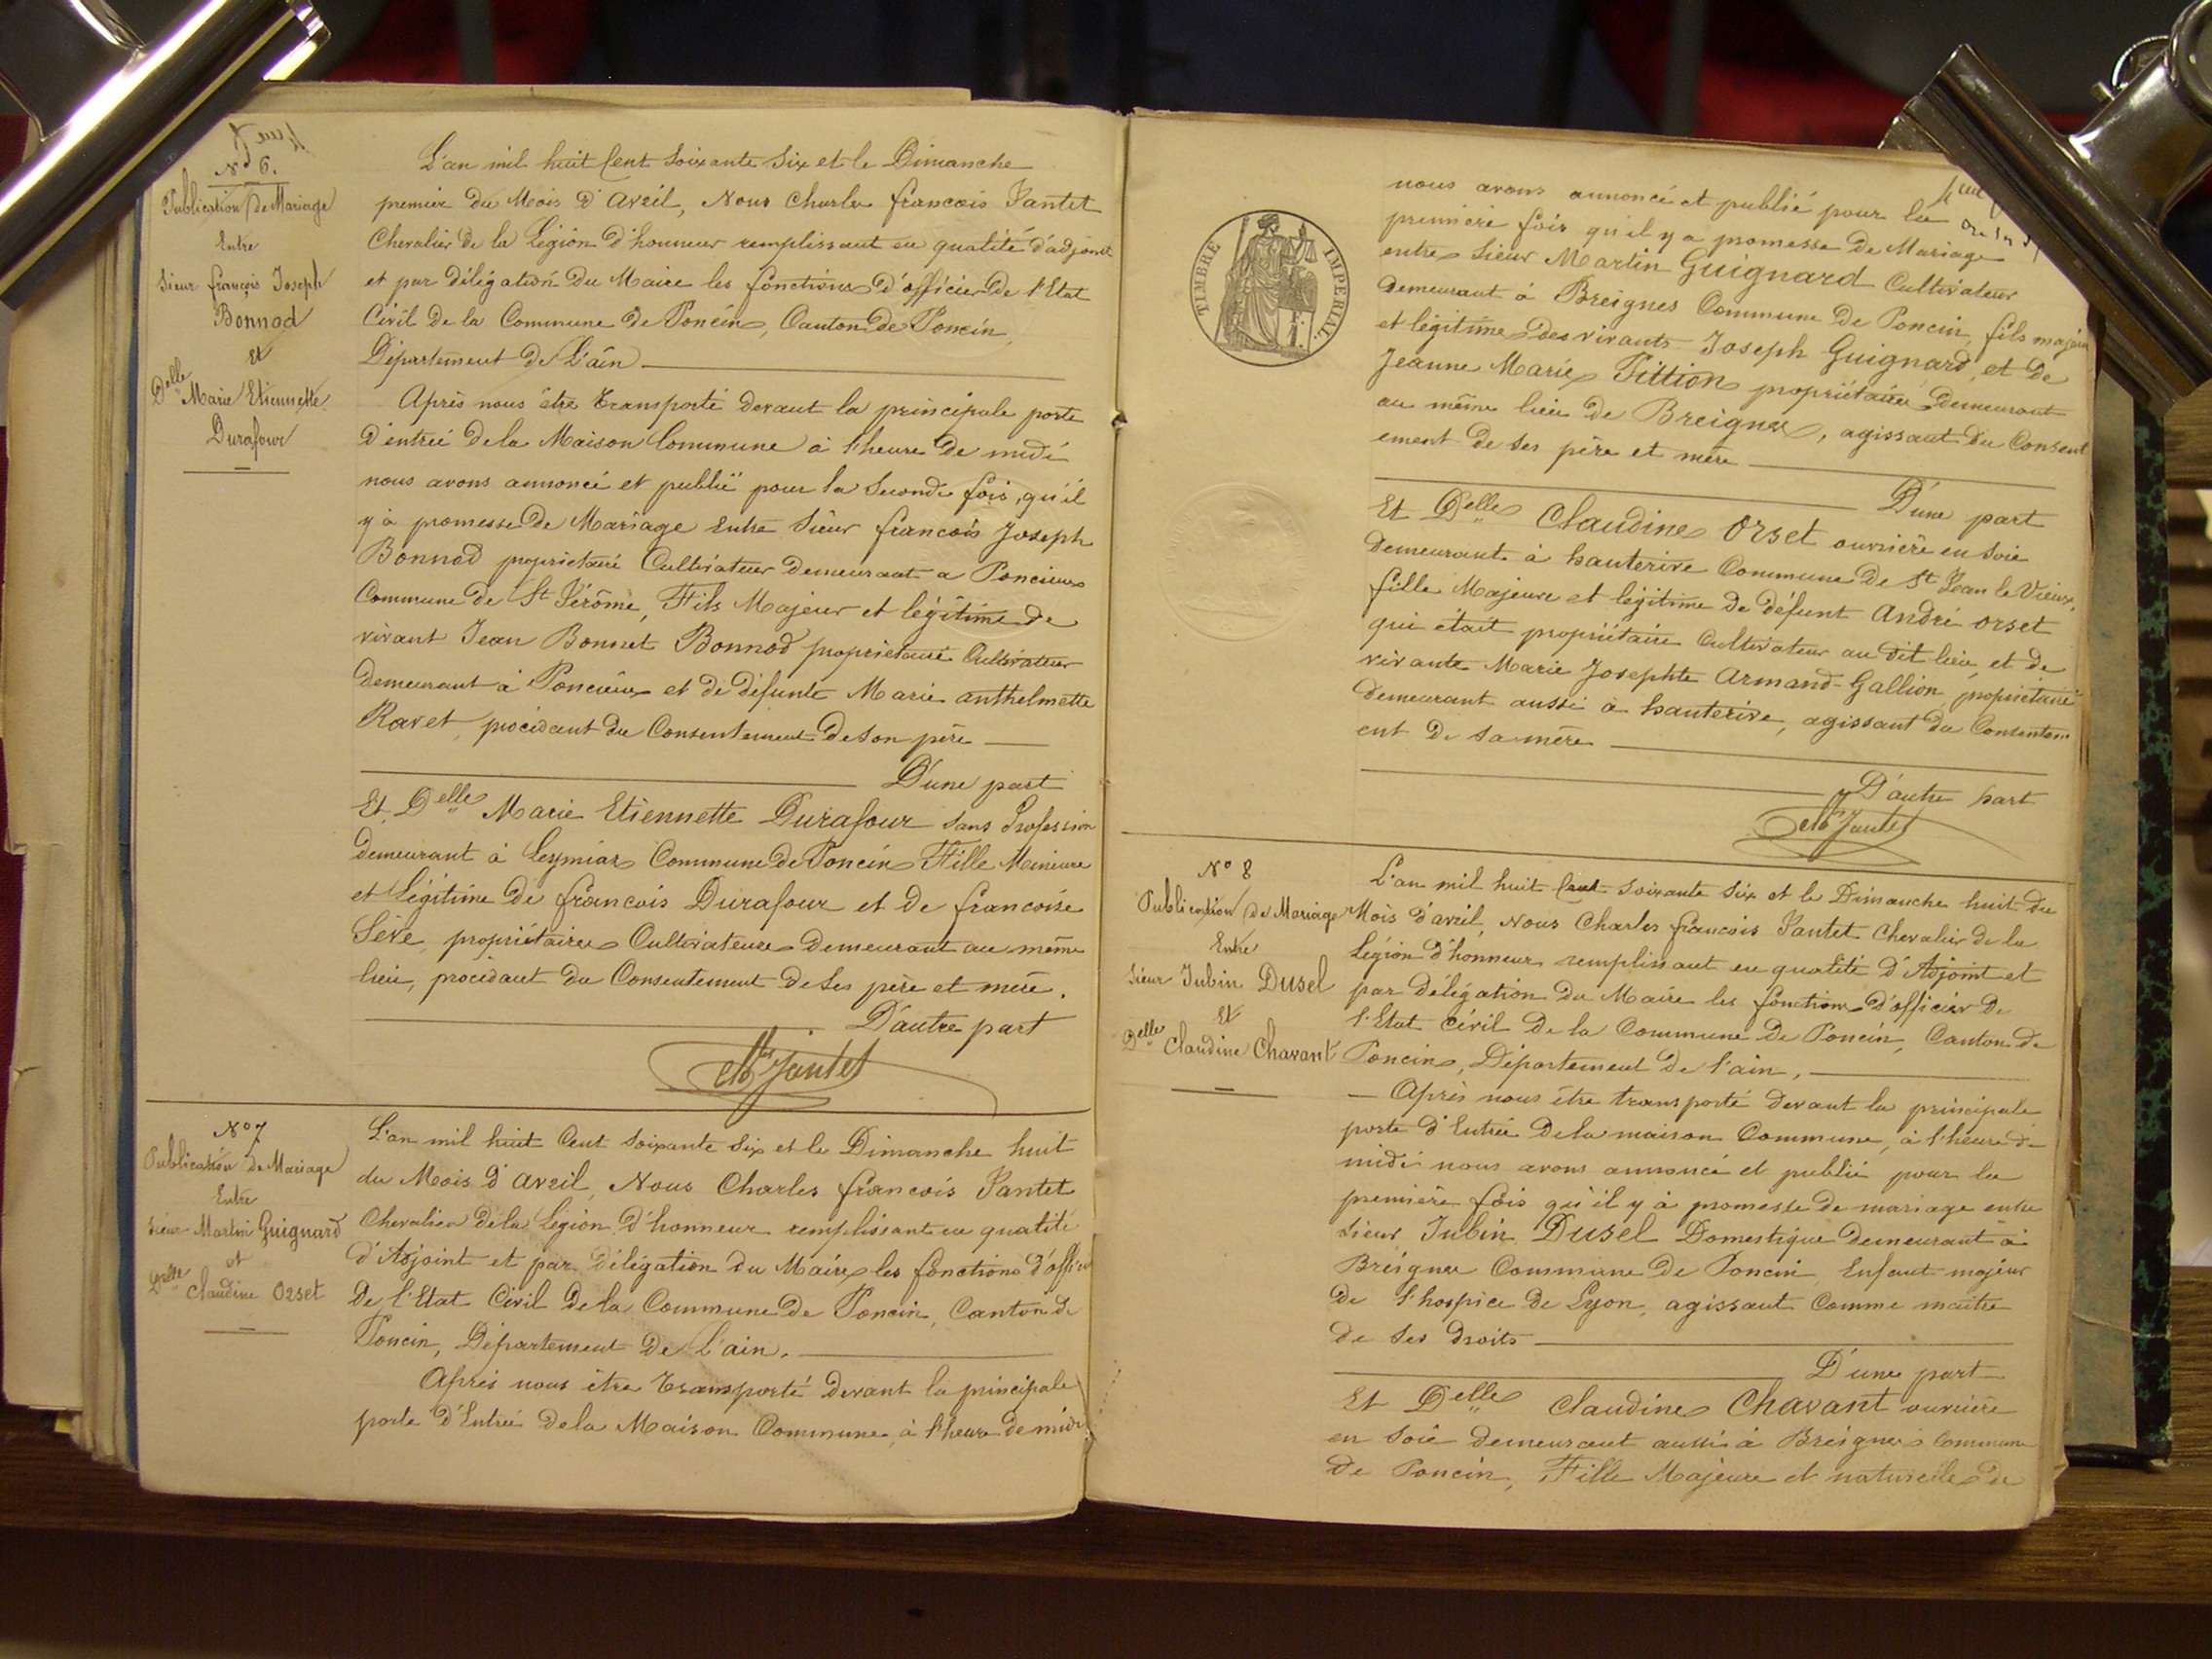 N° 6.
Publication de Mariage
Entre
Sieur françois Joseph
Bonnod
Et
Delle Marie Etiennette
Durafour
L'an mil huit Cent Soixante Six et le Dimanche
premier du Mois d'avril, Nous Charles francois Jantet
Chevalier de la Légion d'honneur remplissant en qualité d'adjoint
et par délégation du Maire les fonctions d'officier de l'Etat
Civil de la Commune de Poncin, Canton de Poncin,
Département de L'ain
Après nous être transporté devant la principale porte
d'entrée de la Maison Commune à l'heure de midi
nous avons annoncé et publié pour la Seconde fois, qu'il
y à promesse de Mariage Entre Sieur francois Joseph
Bonnod propriétaire Cultivateur demeurant a Poncieux
Commune de St Jérôme, Fils Majeur et légitime de
vivant Jean Bonnet Bonnod propriétaire Cultivateur
demeurant à Poncieux et de défunte Marie anthelmette
Ravet, procédant du Consentement de son père
D'une part
Et Delle Marie Etiennette Durafour sans Profession
demeurant à Leymiar Commune de Poncin Fille Mineure
et Légitime de francois Durafour et de francoise
Sève, propriétaires Cultivateurs demeurant au même
lieu, procédant du Consentement de ses père et mère.
D'autre part
Chs Jantet
N° 7
Publication de Mariage
Entre
Sieur Martin Guignard
et
Delle Claudine Orset
L'an mil huit Cent Soixante Six et le Dimanche huit
du Mois d'avril, Nous Charles francois Jantet
Chevalier de la Légion d'honneur remplissant en qualité
d'Adjoint et par délégation du Maire les fonctions d'officier
De l'Etat Civil de la Commune de Poncin, Canton de
Poncin, Département de L'ain.
Après nous être transporté devant la principale
porte d'Entrée de la Maison Commune, à l'heure de midi
TIMBRE IMPERIAL
nous avons annoncé et publié pour la
première fois qu'il y a promesse de Mariage
entre Sieur Martin Guignard Cultivateur
demeurant à Breignes Commune de Poncin, fils majeur
et légitime des vivants Joseph Guignard, et de
Jeanne Marie Fittion propriétaires demeurant
au même lieu de Breignes, agissant du Consent
ement de ses père et mère
D'une part
Et Delle Claudine Orset ouvrière en soie
demeurant à hauterive Commune de St Jean le Vieux,
fille Majeure et légitime de défunt André orset
qui était propriétaire Cultivateur au dit lieu, et de
vivante Marie Josephte Armand-Gallion, propriétaire
demeurant aussi à hauterive, agissant du Consentem
ent de sa mère
D'autre part
Chs Jantet
N° 8
Publication de Mariage
Entre
Sieur Jubin Dusel
Et
Delle Claudine Chavant
L'an mil huit Cent soixante six et le Dimanche huit du
Mois d'avril, Nous Charles francois Jantet Chevalier de la
Légion d'honneur remplissant en qualité d'Adjoint et
par délégation du Maire les fonctions d'officier de
l'Etat Civil de la Commune de Poncin, Canton de
Poncin, Département de l'ain,
Après nous être transporté devant la principale
porte d'Entrée de la maison Commune, à l'heure de
midi nous avons annoncé et publié pour la
première fois qu'il y à promesse de mariage entre
Sieur Jubin Dusel Domestique demeurant à
Breignes Commune de Poncin, Enfant majeur
de l'hospice de Lyon, agissant Comme maître
de ses droits
D'une part
Et Delle Claudine Chavant ouvrière
en soie demeurant aussi à Breignes Commune
de Poncin, Fille Majeure et naturelle de